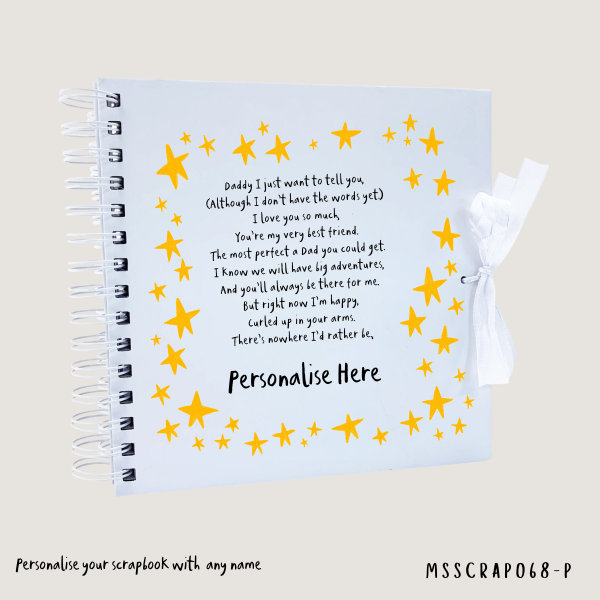 Daddy I just want to tell you,
(Although I don't have the words yet)
I love you so much,
You're my very best friend.
The most perfect a Dad you could get.
I know we will have big adventures,
And you'll always be there for me.
But right now I'm happy,
Curled up in your arms.
There's nowhere I'd rather be,
Personalise Here
Personalise your scrapbook with any name
MSSCRAP068-P